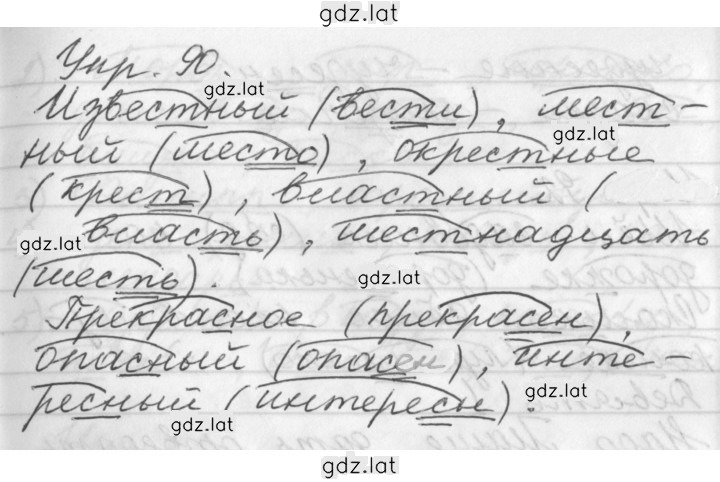 gdz.lat
Упр. 90.
gdz.lat
Известный (вести), мест-
gdz.lat
ный (место), окрестные
(крест), властный (
gdz.lat
власть), шестнадцать
(шесть).
gdz.lat
Прекрасное (прекрасен),
опасный (опасен), инте-
gdz.lat
ресный (интересы).
gdz.lat
gdz.lat